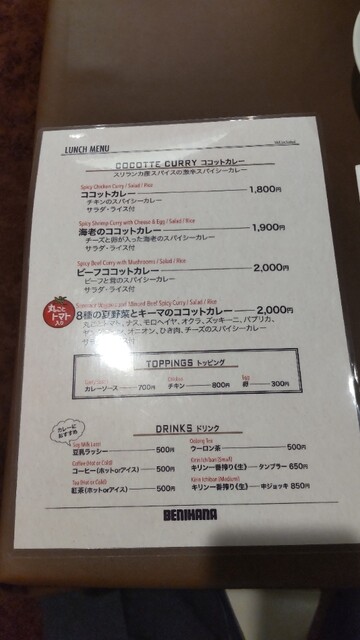 LUNCH MENU
COCOTTE CURRY ココットカレー
スリランカ産スパイスの激辛スパイシーカレー
Spicy Chicken Curry / Salad / Rice
ココットカレー 1,800円
チキンのスパイシーカレー
サラダ・ライス付
Spicy Shrimp Curry with Cheese & Egg / Salad / Rice
海老のココットカレー 1,900円
チーズと卵が入った海老のスパイシーカレー
サラダ・ライス付
Spicy Beef Curry with Mushrooms / Salad / Rice
ビーフココットカレー 2,000円
ビーフと茸のスパイシーカレー
サラダ・ライス付
丸ごとトマト入り
Summer Vegetable and Minced Beef Spicy Curry / Salad / Rice
8種の夏野菜とキーマのココットカレー 2,000円
丸ごとトマト、ナス、モロヘイヤ、オクラ、ズッキーニ、パプリカ、
オニオン、ひき肉、チーズのスパイシーカレー
TOPPINGS トッピング
カレーソース 700円
Chicken
チキン 800円
Egg
卵 300円
カレーにおすすめ
DRINKS ドリンク
Soy Milk Lassi
豆乳ラッシー 500円
Coffee (Hot or Cold)
コーヒー(ホットorアイス) 500円
Tea (Hot or Cold)
紅茶(ホットorアイス) 500円
Oolong Tea
ウーロン茶 500円
Kirin Ichiban (Small)
キリン一番搾り《生》 タンブラー 650円
Kirin Ichiban (Medium)
キリン一番搾り《生》 中ジョッキ 850円
BENIHANA